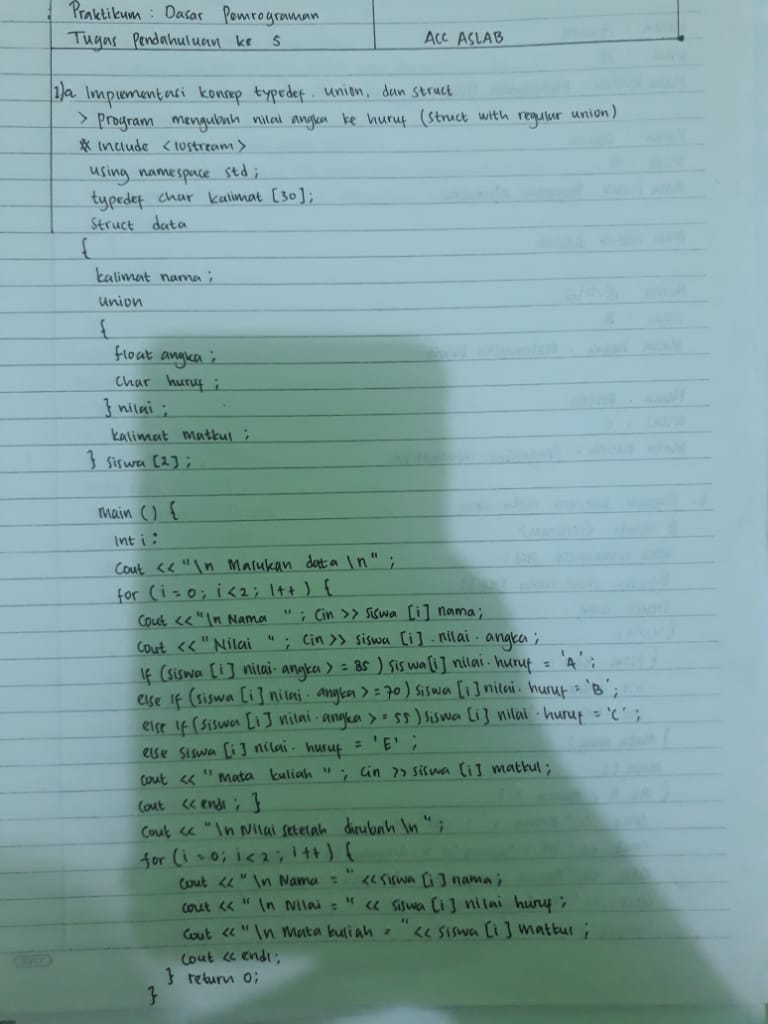 Praktikum : Dasar Pemrograman
Tugas Pendahuluan ke 5
ACC ASLAB
1)a Implementasi konsep typedef. union, dan struct
> Program mengubah nilai angka ke huruf (struct with regular union)
# Include <iostream>
using namespace std;
typedef char kalimat [30];
Struct data
{
kalimat nama;
union
{
float angka;
char huruf;
} nilai;
kalimat matkul;
} siswa [2];
main () {
Int i:
Cout <<"\n Masukan data \n";
for (i=0; i<2; i++) {
Cout <<"\n Nama "; Cin >> siswa [i] nama;
Cout <<"Nilai "; Cin>> siswa [i] .nilai.angka;
If (siswa [i] nilai.angka >= 85) siswa[i] nilai.huruf = 'A';
else if (siswa [i] nilai. angka >=70) siswa [i] nilai. huruf = 'B';
else if (siswa [i] nilai.angka >= 55) siswa [i] nilai .huruf = 'C';
else siswa [i] nilai. huruf = 'E';
cout << "Mata kuliah "; Cin >> siswa [i] matkul;
Cout <<endl; }
Cout << "\n Nilai setelah dirubah \n";
for (i=0; i<2; i++) {
Cout <<"\n Nama = " <<siswa [i] nama;
Cout <<"\n Nilai = " << siswa [i] nilai huruf;
Cout <<"\n Mata kuliah = "<< siswa [i] matkul;
Cout << endl;
} return 0;
}